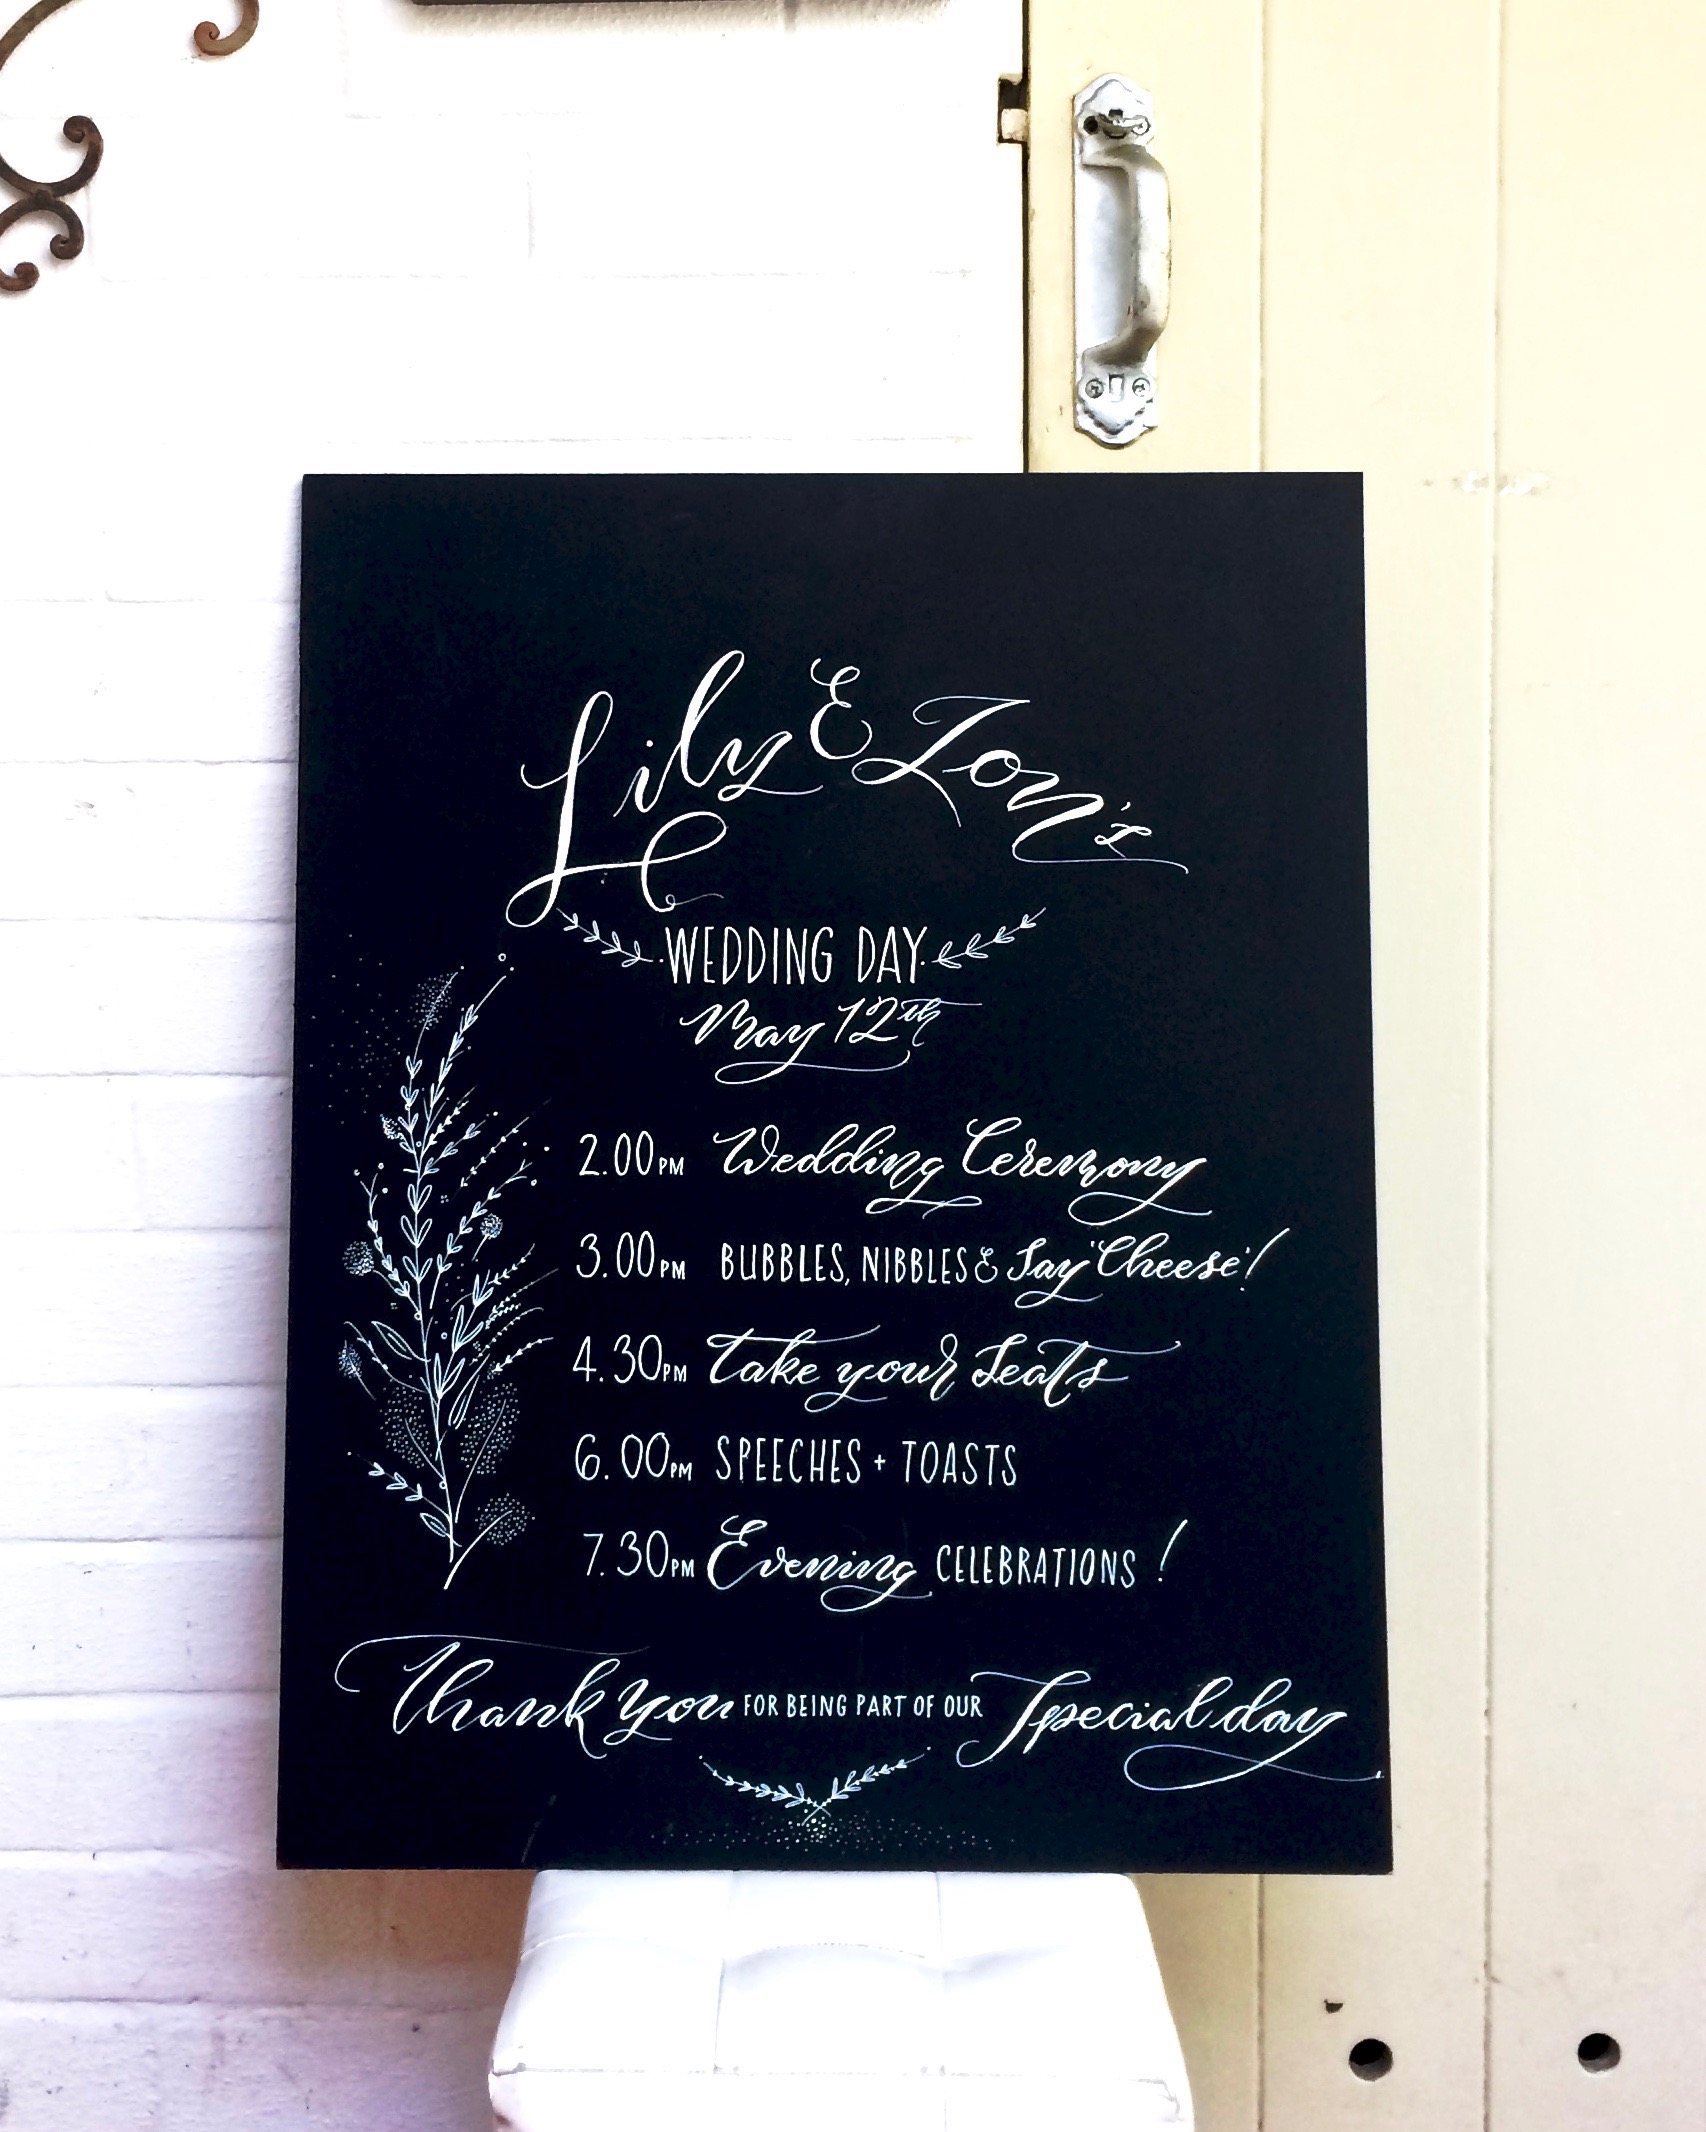 Lily & Jon's
WEDDING DAY
May 12th
2.00PM Wedding Ceremony
3.00PM BUBBLES, NIBBLES & Say "Cheese"!
4.30PM Take your Seats
6.00PM SPEECHES + TOASTS
7.30PM Evening CELEBRATIONS!
Thank you FOR BEING PART OF OUR Special day